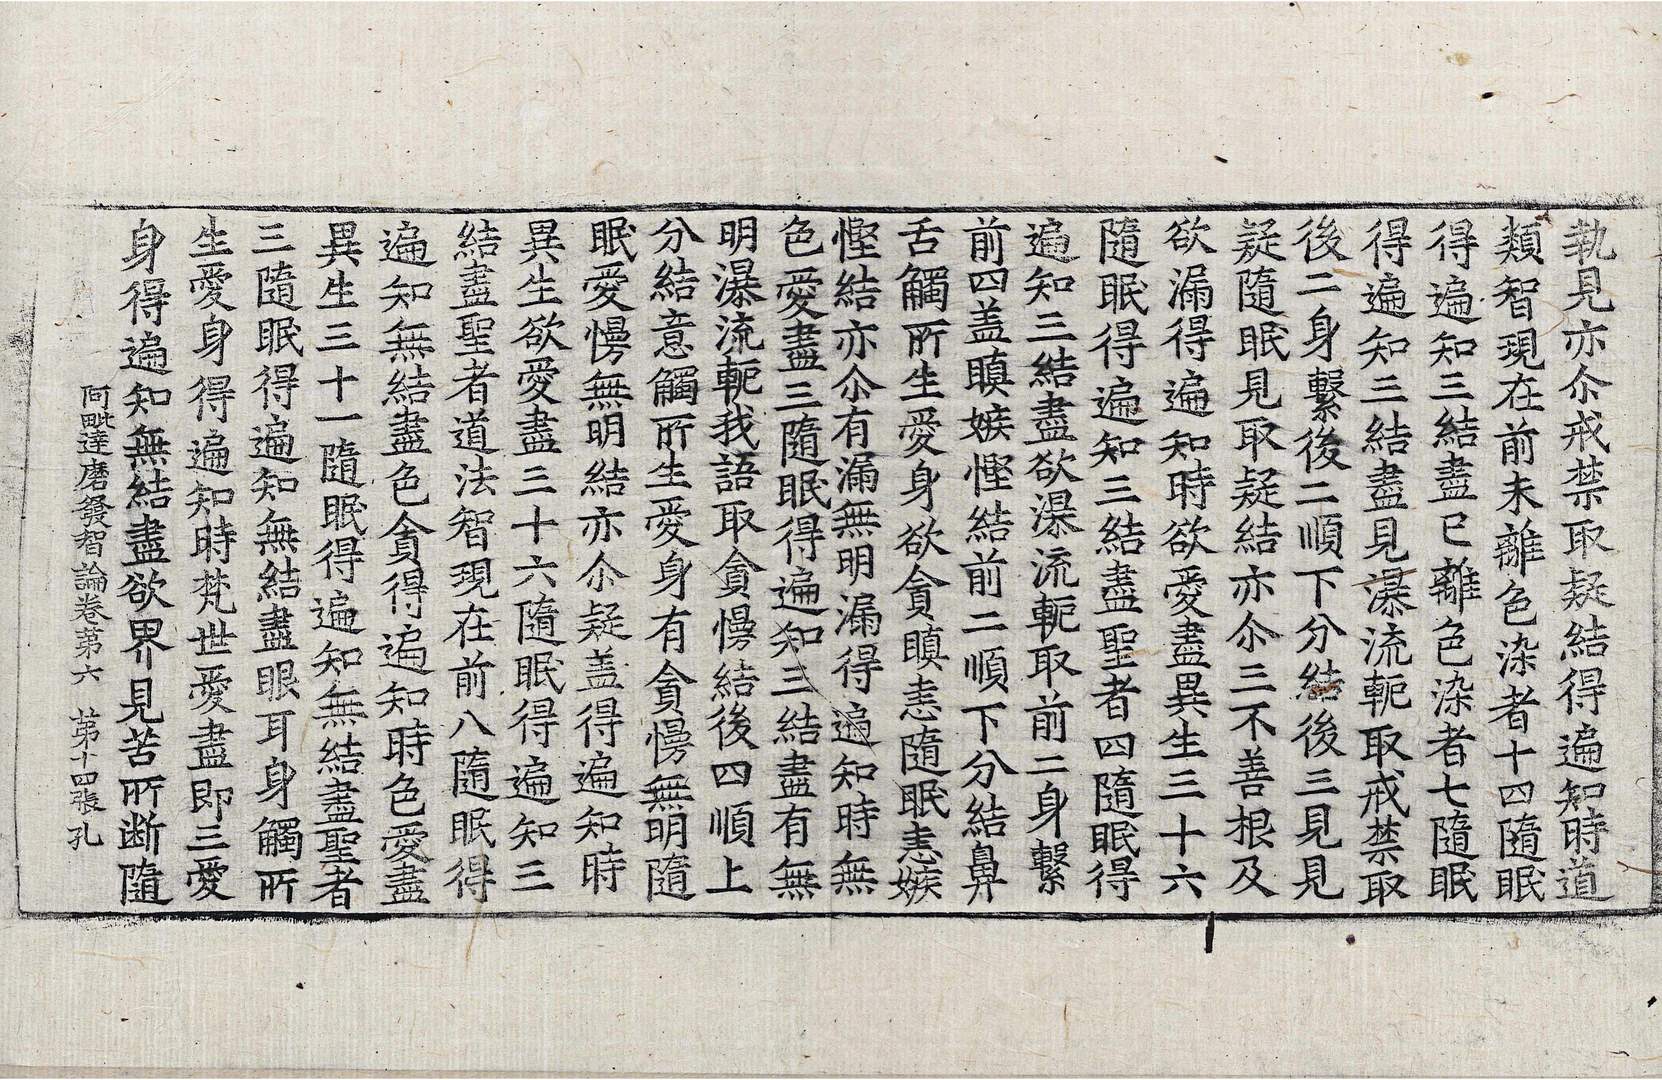 執見亦尒戒禁取疑結得遍知時道
類智現在前未離色染者十四隨眠
得遍知三結盡已離色染者七隨眠
得遍知三結盡見瀑流軛取戒禁取
後二身繫後二順下分結後三見見
疑隨眠見取疑結亦尒三不善根及
欲漏得遍知時欲愛盡異生三十六
隨眠得遍知三結盡聖者四隨眠得
遍知三結盡欲瀑流軛取前二身繫
前四盖瞋嫉慳結前二順下分結鼻
舌觸所生愛身欲貪瞋恚隨眠恚嫉
慳結亦尒有漏無明漏得遍知時無
色愛盡三隨眠得遍知三結盡有無
明瀑流軛我語取貪慢結後四順上
分結意觸所生愛身有貪慢無明隨
眠愛慢無明結亦尒疑盖得遍知時
異生欲愛盡三十六隨眠得遍知三
結盡聖者道法智現在前八隨眠得
遍知無結盡色貪得遍知時色愛盡
異生三十一隨眠得遍知無結盡聖者
三隨眠得遍知無結盡眼耳身觸所
生愛身得遍知時梵世愛盡即三愛
身得遍知無結盡欲界見苦所斷隨
阿毗達磨發智論卷第六 第十四張 孔